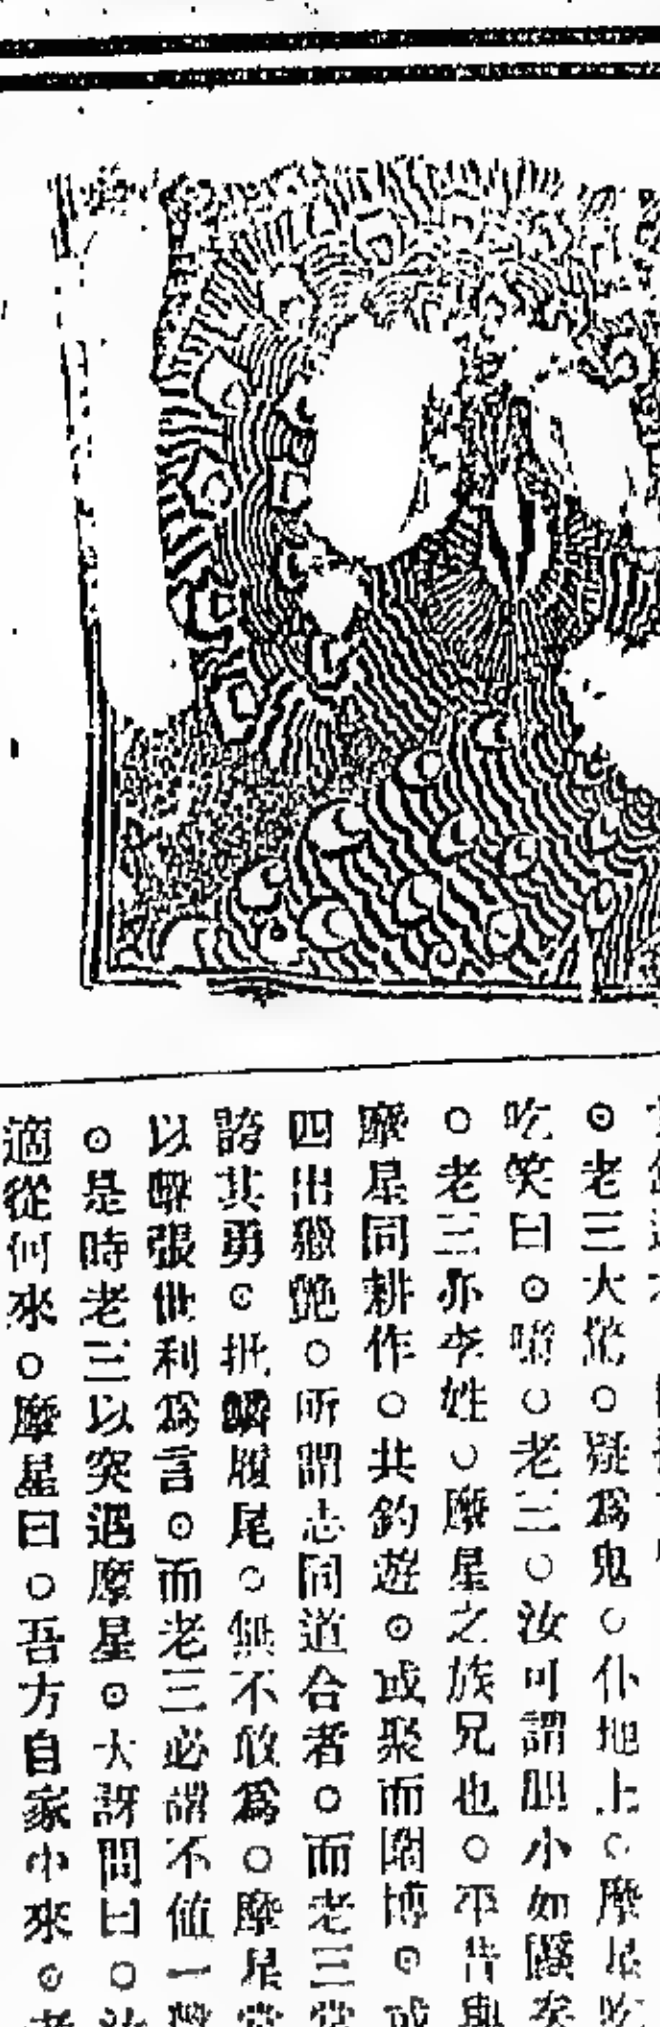 ⊙老三大驚○疑爲鬼○仆地上○摩星吃
吃笑曰⊙嘻○老三○汝可謂胆小如鼷矣
○老三亦李姓○摩星之族兄也○平昔與
摩星同耕作○共釣遊⊙或聚而賭博⊙或
四出獵艷○所謂志同道合者○而老三常
誇其勇⊙批鱗履尾○無不敢爲○摩星常
以譸張世利爲言⊙而老三必謂不值一
⊙是時老三以突遇摩星⊙大訝問曰○汝
適從何來○摩星曰○吾方自家中來⊙老